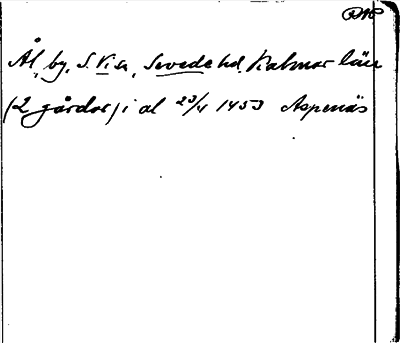 Ål, by, S. Vi sn, Sevede hd. Kalmar län
(2 gårdar) i al 23/4 1453 Aspenäs